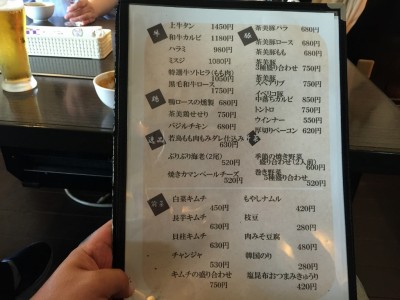 上牛タン 1450円
和牛カルビ 1180円
ハラミ 980円
ミスジ 1080円
特選牛ソトヒラ(もも肉) 1050円
黒毛和牛ロース 1750円
鴨ロースの燻製 680円
茶美鶏せせり 750円
バジルチキン 680円
若鳥もも肉もみダレ仕込み 630円
ぷりぷり海老(2尾) 520円
焼きカマンベールチーズ 520円
白菜キムチ 450円
長芋キムチ 630円
貝柱キムチ 630円
チャンジャ 530円
キムチの盛り合わせ 750円
茶美豚バラ 680円
茶美豚ロース 680円
茶美豚もも 680円
茶美豚
3種盛り合わせ 750円
茶美豚
スペアリブ 750円
イベリコ豚
中落ちカルビ 850円
トントロ 750円
ウインナー 550円
厚切りベーコン 620円
季節の焼き野菜
盛り合わせ(2人前) 600円
巻き焼き野菜
5種盛り合わせ 520円
もやしナムル 420円
枝豆 280円
肉みそ豆腐 480円
韓国のり 280円
塩昆布おつまみきゅうり 420円